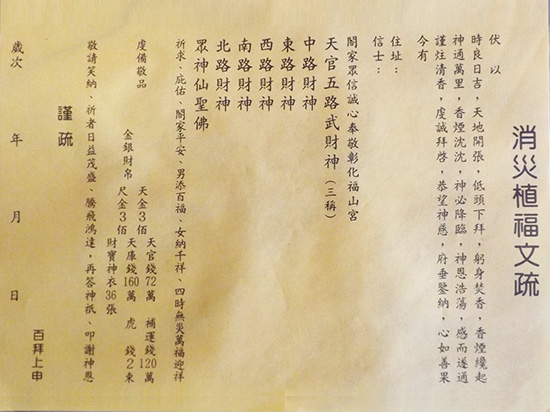 消災植福文疏
伏以
時良日吉，天地開張，低頭下拜，躬身焚香，香煙纔起
神通萬里，香煙沈沈，神必降臨，神恩浩蕩，感而遂通
謹炷清香，虔誠拜啓，恭望神慈，府垂鑒納，心如善果
今有
住址：
信士：
閤家眾信誠心奉敬彰化福山宮
天官五路武財神（三稱）
中路財神
東路財神
西路財神
南路財神
北路財神
眾神仙聖佛
祈求、庇佑、閤家平安、男添百福、女納千祥、四時無災萬福迎祥
虔備敬品
金銀財帛
天金3佰
尺金3佰
天官錢72萬
補運錢120萬
天庫錢160萬
虎錢2束
財寶神衣36張
敬請笑納、祈者日益茂盛、騰飛鴻達，再答神祇、叩謝神恩
謹疏
歲次年月日
百拜上申